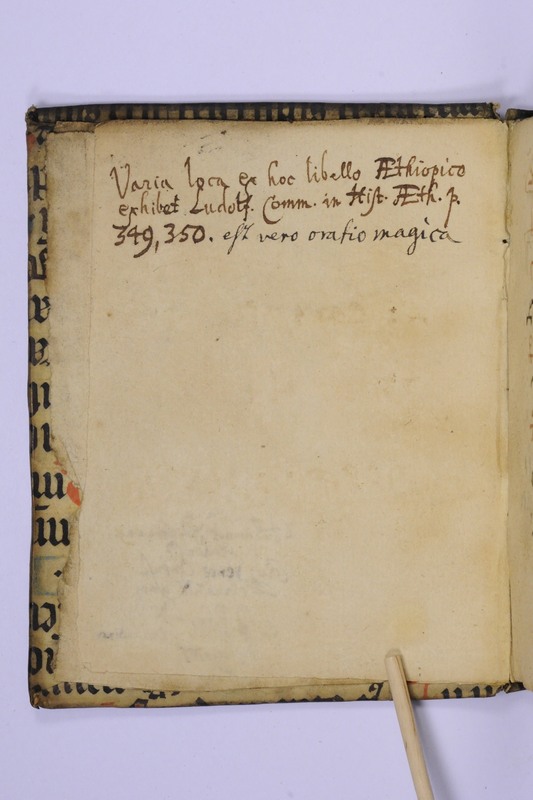 Varia loca ex hoc libello Æthiopico
exhibet Ludolf. Comm. in Hist. Æth. p.
349, 350. est vero oratio magica